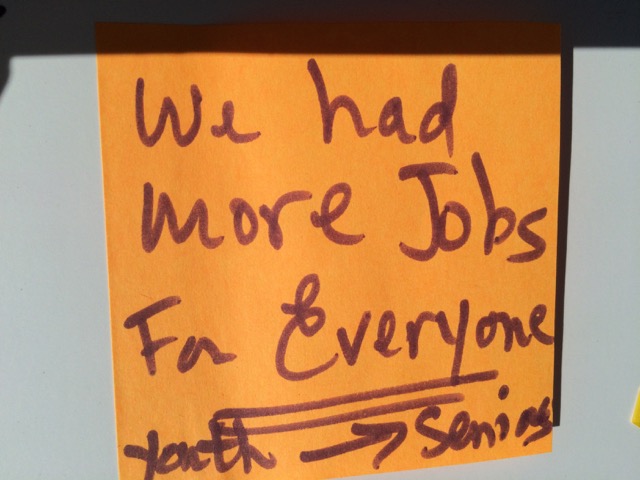 We had
more Jobs
For Everyone
youth → Seniors